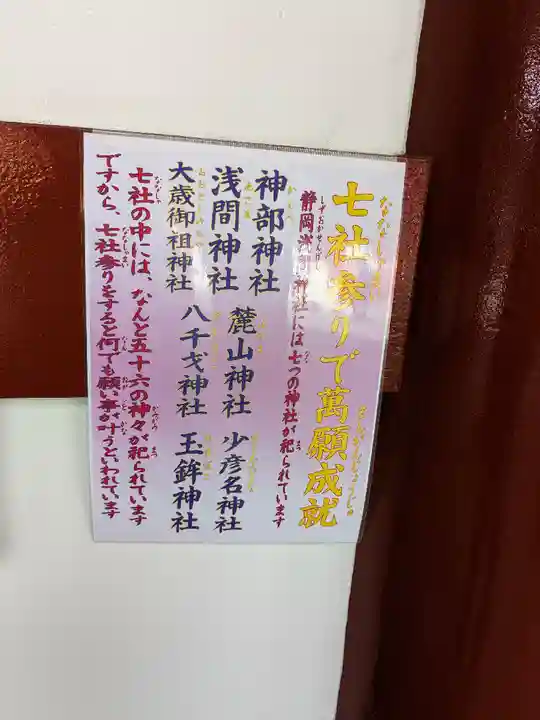 七社参りで萬願成就
静岡浅間神社には七つの神社が祀られています
神部神社
浅間神社
麓山神社
少彦名神社
大歳御祖神社
八千戈神社
玉鉾神社
七社の中には、なんと五十六の神々が祀られています
ですから、七社参りをすると何でも願い事が叶うといわれています